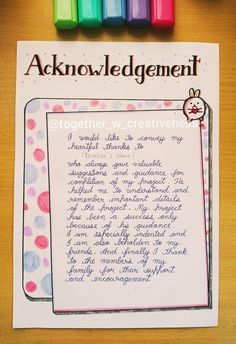 Acknowledgement
@together_w_creativeness
I would like to convey my
heartful thanks to
(Teacher's Name)
who always gave valuable
suggestions and guidance for
completion of my project. He
helped me to understand and
remember important details
of the project. My project
has been a success only
because of his guidance.
I am especially indented and
I am also beholden to my
friends. And finally I thank
to the members of my
family for their support
and encouragement.